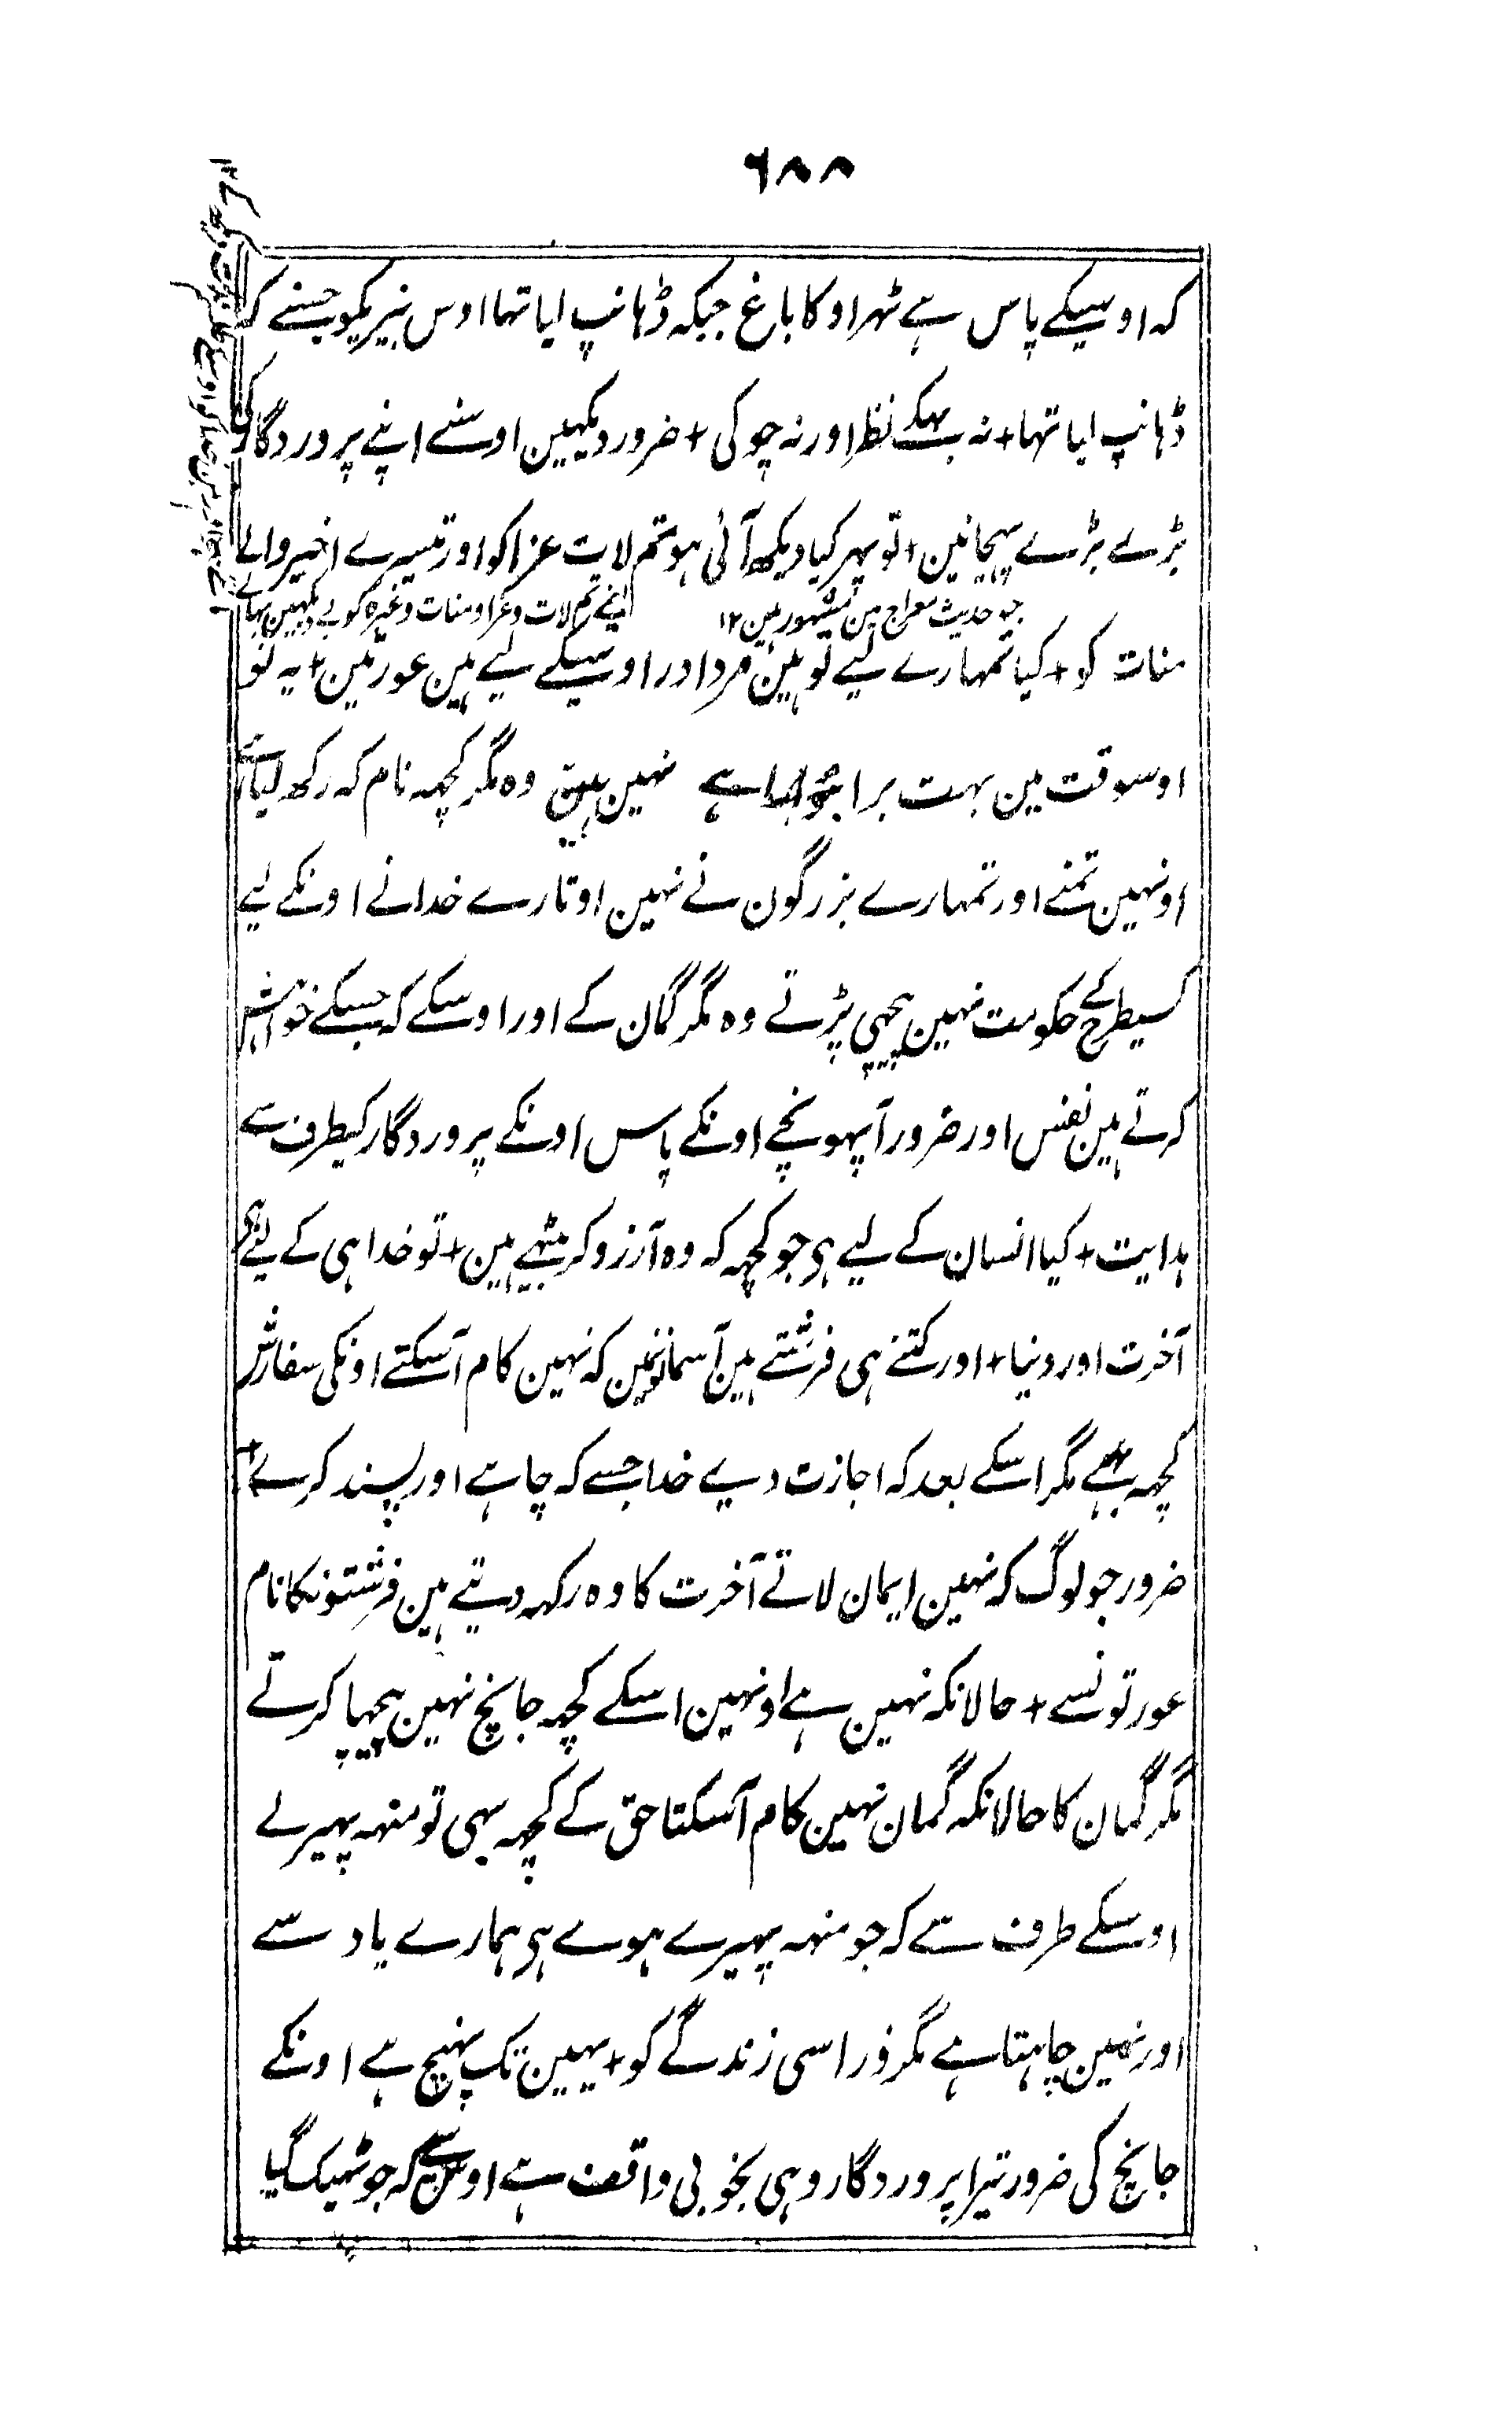 ٦٨٨
کہ اوسیکے پاس ہے ٹہراو کا باغ جبکہ ڈہانپ لیا تہا اوس بیریکو جسنے کہ
ڈہانپ لیا تہا + نہ بہکے نظر اور نہ چوکی + ضرور دیکہین اوسنے اپنے پروردگار کی
بڑے بڑے پہچانین + تو پہر کیا دیکھ آئی ہو تم لات عزا کو اور تیسرے اخیر والے
جو حدیث معراج مین مشہور ہین ١٢ یعنے تم لات و عزا و منات وغیرہ کو بے دیکہین بہالے
منات کو + کیا تمہارے لیے تو ہین مرد اور اوسیکے لیے ہین عورتین + یہ تو
اوسوقت مین بہت برا ہے نہین ہین وہ مگر کچہہ نام کہ رکھ لیا ہے
اونہین تمنے اور تمہارے بزرگون نے نہین اوتارے خدا نے اونکے لیے
کسیطرح کے حکومت نہین پیچہی پڑتے وہ مگر گمان کے اور اوسکے کہ جسکے خواہش
کرتے ہین نفس اور ضرور آپہونچے اونکے پاس اونکے پروردگار کیطرف سے
ہدایت + کیا انسان کے لیے ہی جو کچہہ کہ وہ آرزو کر بیٹہے ہین + تو خدا ہی کے لیے ہی
آخرت اور دنیا + اور کتنے ہی فرشتے ہین آسمانونمین کہ نہین کام آسکتے اونکی سفارش
کچہہ بہے مگر اسکے بعد کہ اجازت دیے خدا جسے کہ چاہے اور پسند کرے +
ضرور جو لوگ کہ نہین ایمان لاتے آخرت کا وہ رکہہ دیتے ہین فرشتونکا نام
عورتونسے + حالانکہ نہین ہے اونہین اسکے کچہہ جانچ نہین پیچہا کرتے
مگر گمان کا حالانکہ گمان نہین کام آسکتا حق کے کچہہ بہی تو منہہ پہیرلے
اوسکے طرف سے کہ جو منہہ پہیرے ہوے ہی ہمارے یاد سے
اور نہین چاہتا ہے مگر ذرا سی زندگے کو + یہین تک پہنچ ہے اونکے
جانچ کی ضرور تیرا پروردگار وہی بخوبی واقف ہے اوس سے کہ جو ٹہیک گیا